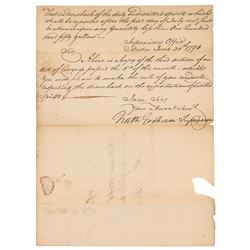 That no drawback of the duty on distilled spirits which
shall be exported after the first day of July next shall
be allowed upon any quantity less than one hundred
and fifty gallons.
Supervisor's Office
Boston June 30th 1794
Sir
Above is a copy of the third section of an
act of Congress passed the 5th of this month - which
you will please to make the rule of your conduct
respecting the drawback on the exportation of distilled
spirits
I am Sir
Your Humble Servt
Nath Gorham Supervisor